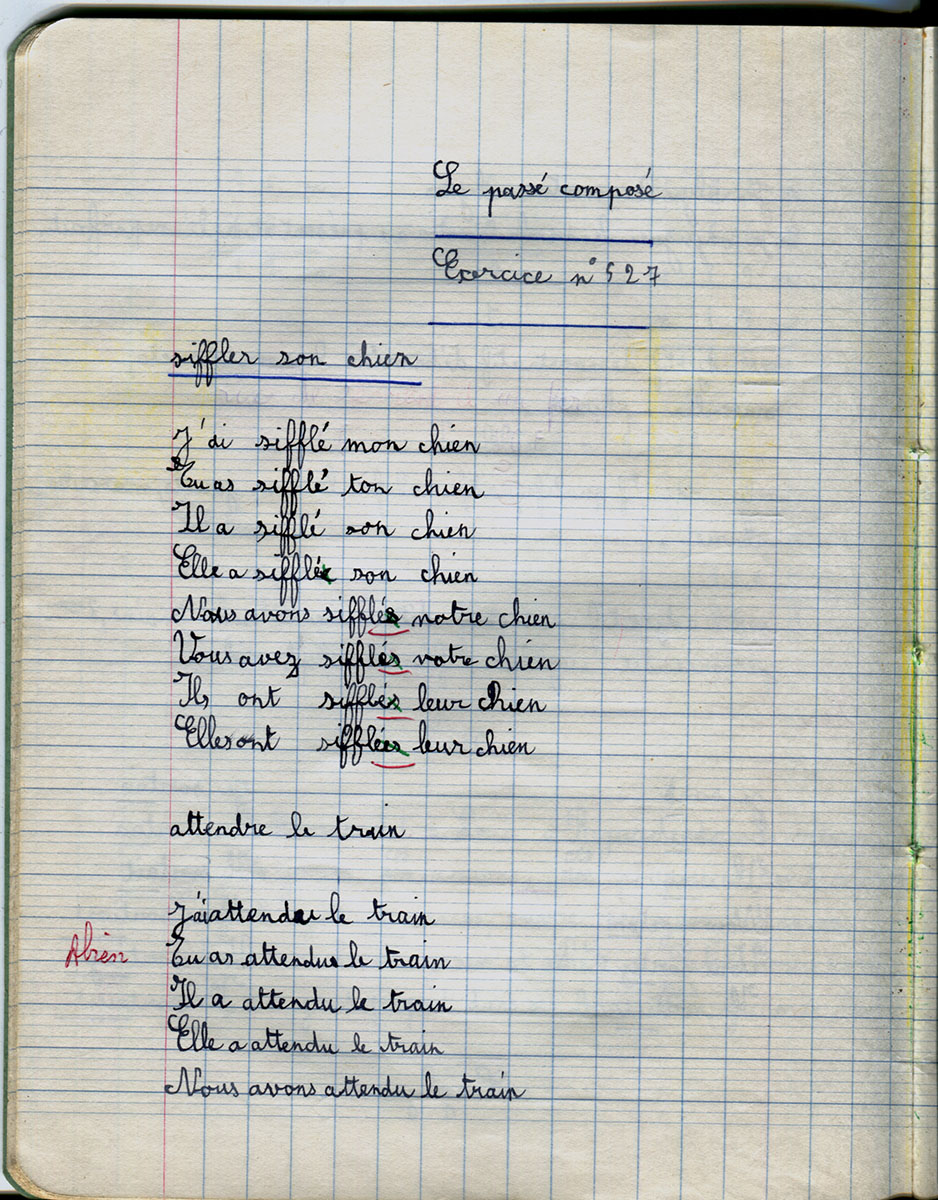 Le passé composé
Exercice n° 527
siffler son chien
J'ai sifflé mon chien
Tu as sifflé ton chien
Il a sifflé son chien
Elle a sifflée son chien
Nous avons sifflés notre chien
Vous avez sifflés votre chien
Ils ont sifflés leur chien
Elles ont sifflées leur chien
attendre le train
J'ai attendu le train
ABien Tu as attendu le train
Il a attendu le train
Elle a attendu le train
Nous avons attendu le train